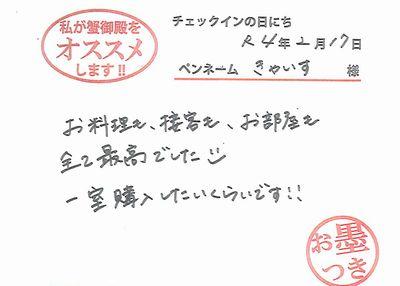 私が蟹御殿を
オススメ
します!!
チェックインの日にち
R4年2月17日
ペンネーム きゃいす 様
お料理も、接客も、お部屋も
全て最高でした
一室購入したいくらいです!!
お墨
つき